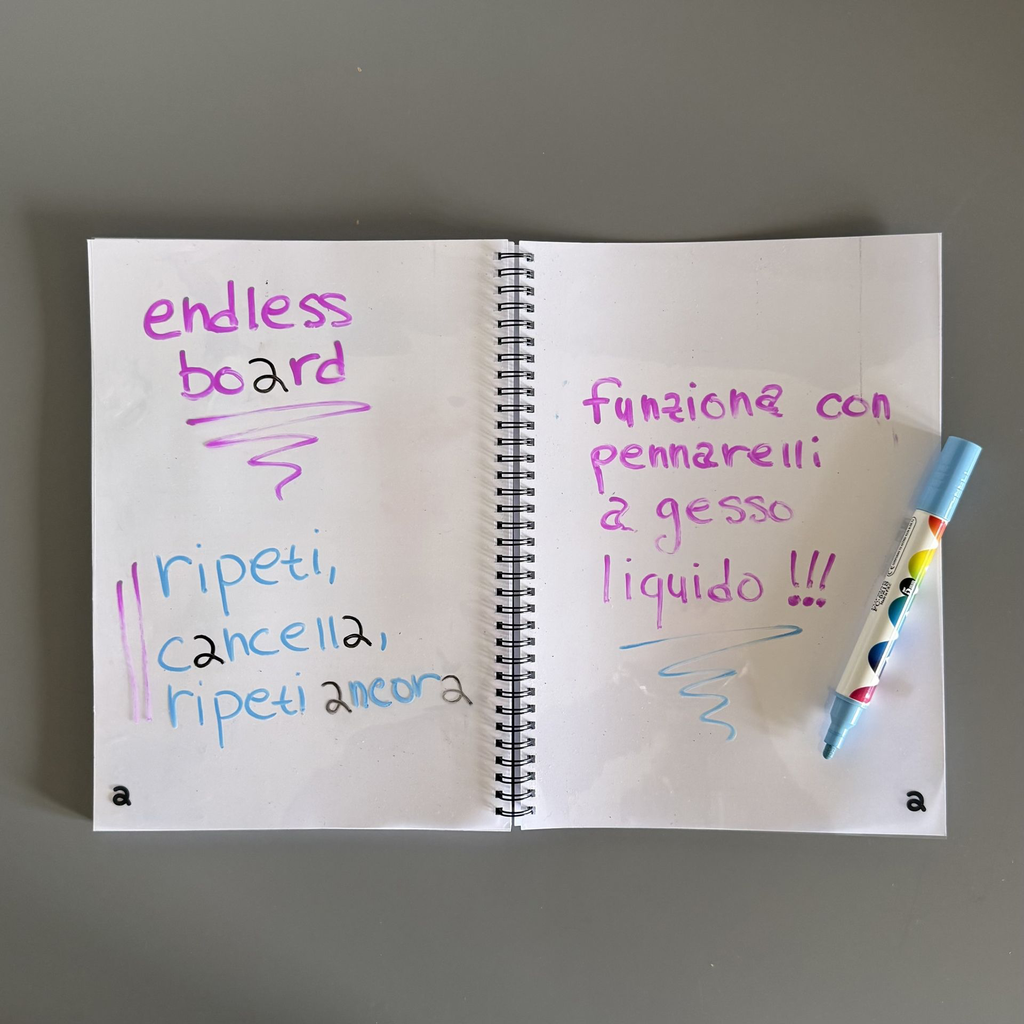 endless
board
ripeti,
cancella,
ripeti ancora
a
funziona con
pennarelli
a gesso
liquido !!!
a